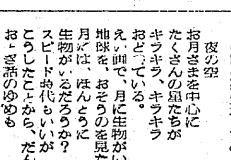 夜の空
お月さまを中心に
たくさんの星たちが
キラキラ、キラキラ
おどっている。
えい画で、月に生物がい
地球を、おそうのを見た
月には、ほんとうに
生物がいるだろうか?
スピード時代もいいが
こうしたことから、だん
おとぎ話のゆめも